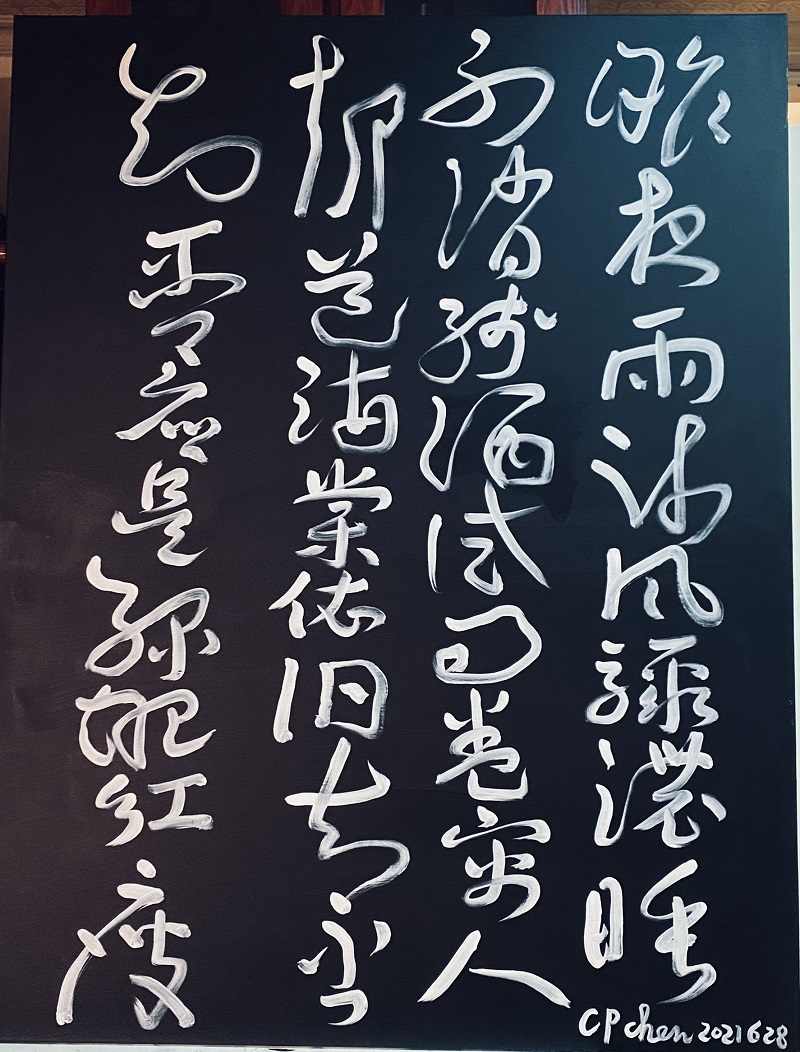 昨夜雨疏風驟濃睡
不消殘酒試問卷簾人
却道海棠依旧知否
知否应是綠肥紅瘦
CP chen 2021 6 28